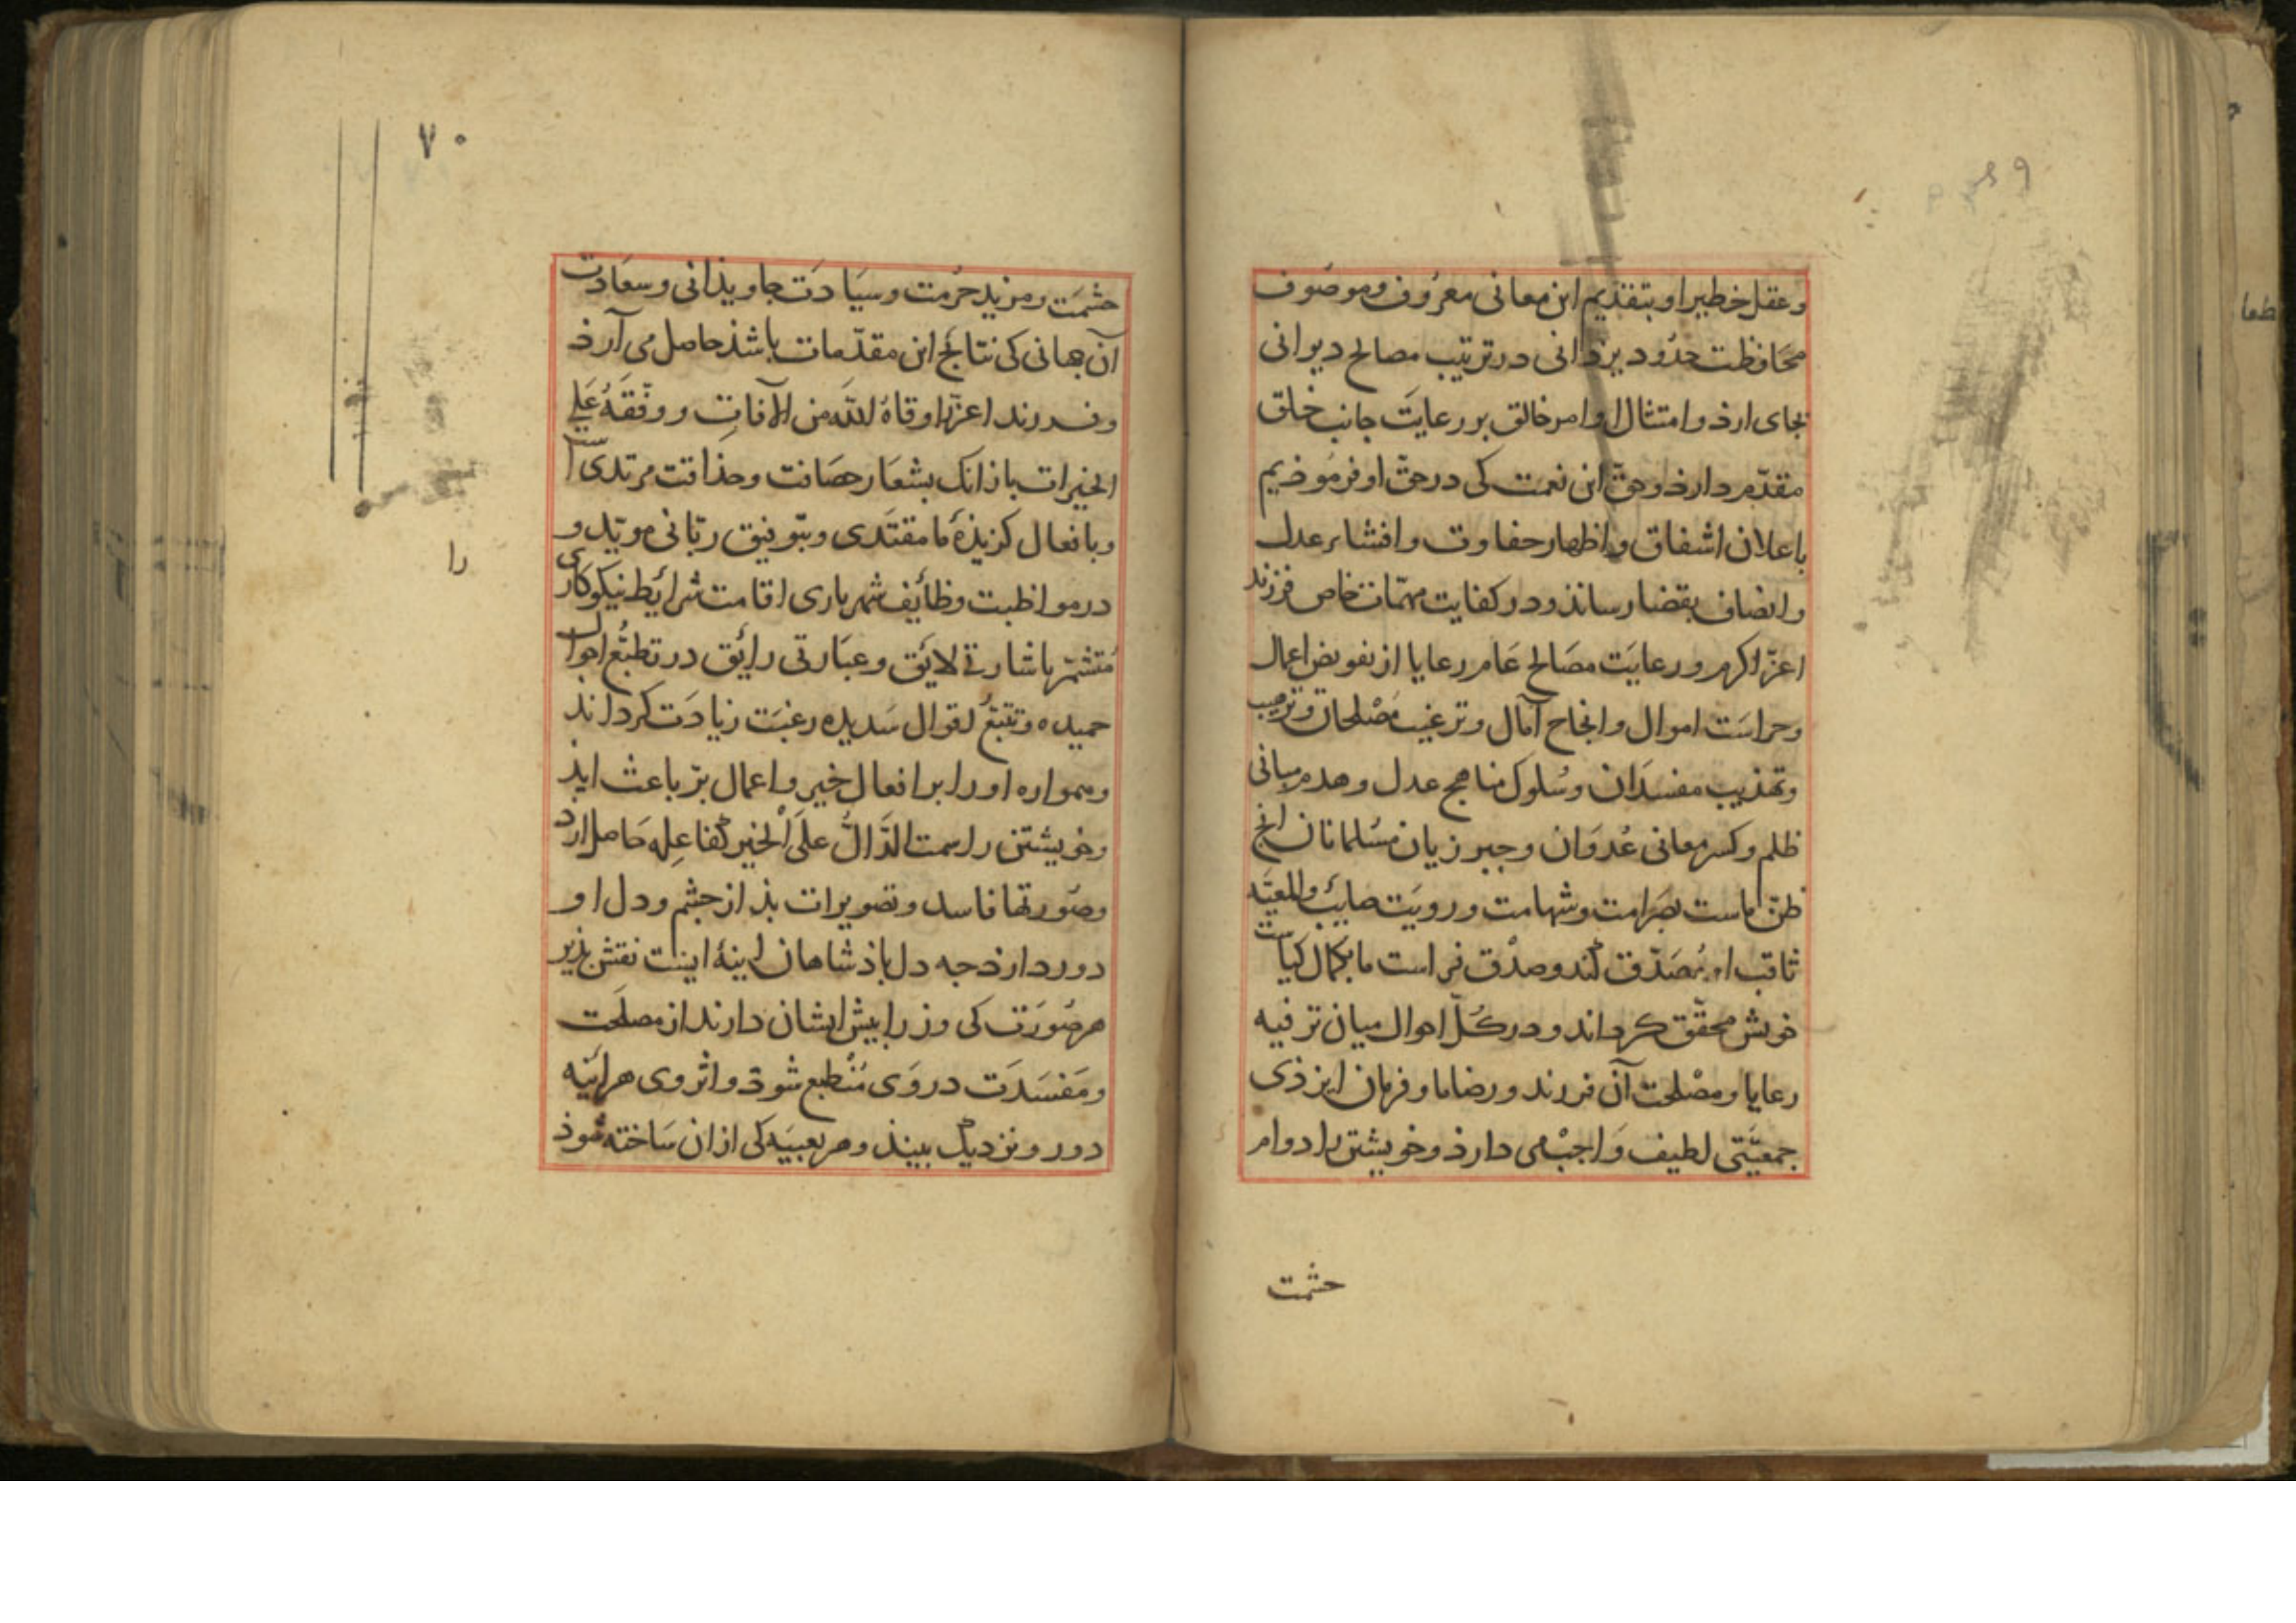 وعقل خطیر او بتقذیم این معانی معرُوف وموصُوف
محَافظت حدُود یزدانی در ترتیب مصالح دیوانی
بجای ارذ وامتثال اوامر خالق بر رعایَت جانب خلق
مقدّم دارذ وحقّ این نعمَت کی در حق او فرمُوذیم
باعلان اشفاق واظهار حفاوت وافشاء عدل
وانصاف بقضا رسانذ ودر کفایت مهمّات خاص فرزند
اعزّ اکرم ورعایَت مصَالح عَام رعایا از تفویض اعمال
وحراسَت اموال وانجاح آمال وترغیب مُصْلحان وترهیب
وتهذیب مفسدَان وسُلوک مناهج عدل وهدم مبانی
ظلم وکسر معانی عُدوَان وجبر زیان مسُلمانان انچ
ظنّ ماست بصَرامت وشهامت ورویَت صایب والمعیّه
ثاقب او مُصَدّق کند وصدْق فراست ما بکمال کیاست
خویش محقّق کرداند ودر کلّ احوال میان ترفیه
رعایا ومصْلحت آن فرزند ورضا ما وفرمان ایزذی
جمعیّتی لطیف وَاجبْ می دارذ وخویشتن را دوام
حشمت
۷۰
حشمَت ومزید حرُمت وسیَادَت جاویذانی وسعَادت
آن جهانی کی نتائج این مقدّمات باشذ حاصل می آرذ
وفرزند اعزّ را وقاهُ اللّه من الآفاتِ ووفّقَهُ عَلی
الخیرات باز انک بشعَار حصَانت وحذاقت مرتدی است
وبافعال کزیذهٔ ما مقتَدی وبتوفیق ربّانی مویّد و
در مواظبت وظائف شهریاری اقامت شرائط نیکوکاری
را
مُتشمّر باشارتی لائق وعبَارتی رائق در تطبّع احوال
حمیده وتتبّعُ اقوال سَدیده رغبَت زیادَت کرداند
وهمواره او را بر افعال خیر واعمال برّ باعث ایذ
وخویشتن را سمت الدَّالُّ علَی الْخیر کفاعِلِه حَاصل ارد
وصُورتها فاسد وتصویرات بذ از جشم ودل او
دور دارذ جه دل باذشاهان اینهٔ اینست نقش بذیر
هر صُورَت کی وزرا بیش ایشان دارند از مصلحَت
ومَفسَدَت در وَی مُنْطبع شوذ واثر وی هرائنه
دور ونزدیک ببیند وهر تعبیَه کی ازان سَاخته شوذ